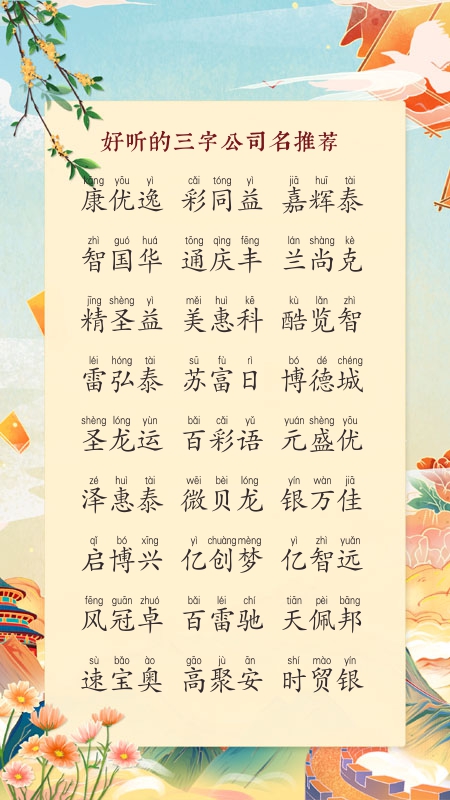 好听的三字公司名推荐
kāng yōu yì cǎi tóng yì jiā huī tài
康优逸 彩同益 嘉辉泰
zhì guó huá tōng qìng fēng lán shàng kè
智国华 通庆丰 兰尚克
jīng shèng yì měi huì kē kù lǎn zhì
精圣益 美惠科 酷览智
léi hóng tài sū fù rì bó dé chéng
雷弘泰 苏富日 博德城
shèng lóng yùn bǎi cǎi yǔ yuán shèng yōu
圣龙运 百彩语 元盛优
zé huì tài wēi bèi lóng yín wàn jiā
泽惠泰 微贝龙 银万佳
qǐ bó xīng yì chuàng mèng yì zhì yuǎn
启博兴 亿创梦 亿智远
fēng guān zhuó bǎi léi chí tiān pèi bāng
风冠卓 百雷驰 天佩邦
sù bǎo ào gāo jù ān shí mào yín
速宝奥 高聚安 时贸银